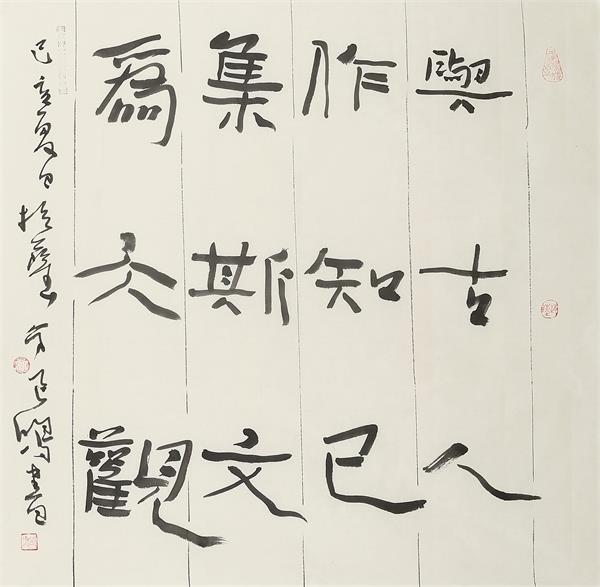 與古人
作知己
集斯文
爲大觀
己亥夏日於
書